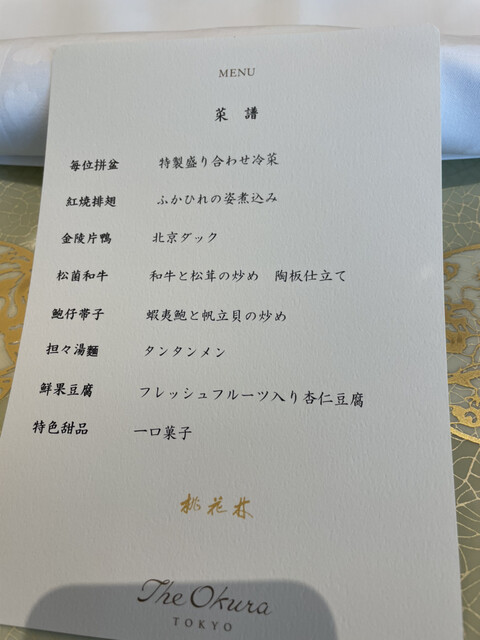 MENU
菜 譜
毎位拼盆 特製盛り合わせ冷菜
紅燒排翅 ふかひれの姿煮込み
金陵片鴨 北京ダック
松菌和牛 和牛と松茸の炒め 陶板仕立て
鮑仔帯子 蝦夷鮑と帆立貝の炒め
担々湯麵 タンタンメン
鮮果豆腐 フレッシュフルーツ入り杏仁豆腐
特色甜品 一口菓子
桃花林
The Okura
TOKYO